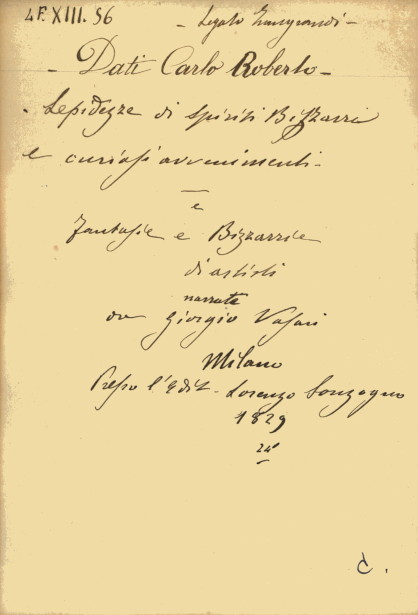 4 F. XIII. 56
- Legato Giangrandi -
- Dati Carlo Roberto -
- Lepidezze di Spiriti Bizzarri
e curiosi avvenimenti -
e
Fantasie e Bizzarrie
di artisti
narrate
da Giorgio Vasari
Milano
Presso l'Edit - Lorenzo Sonzogno
1829
24°
C.